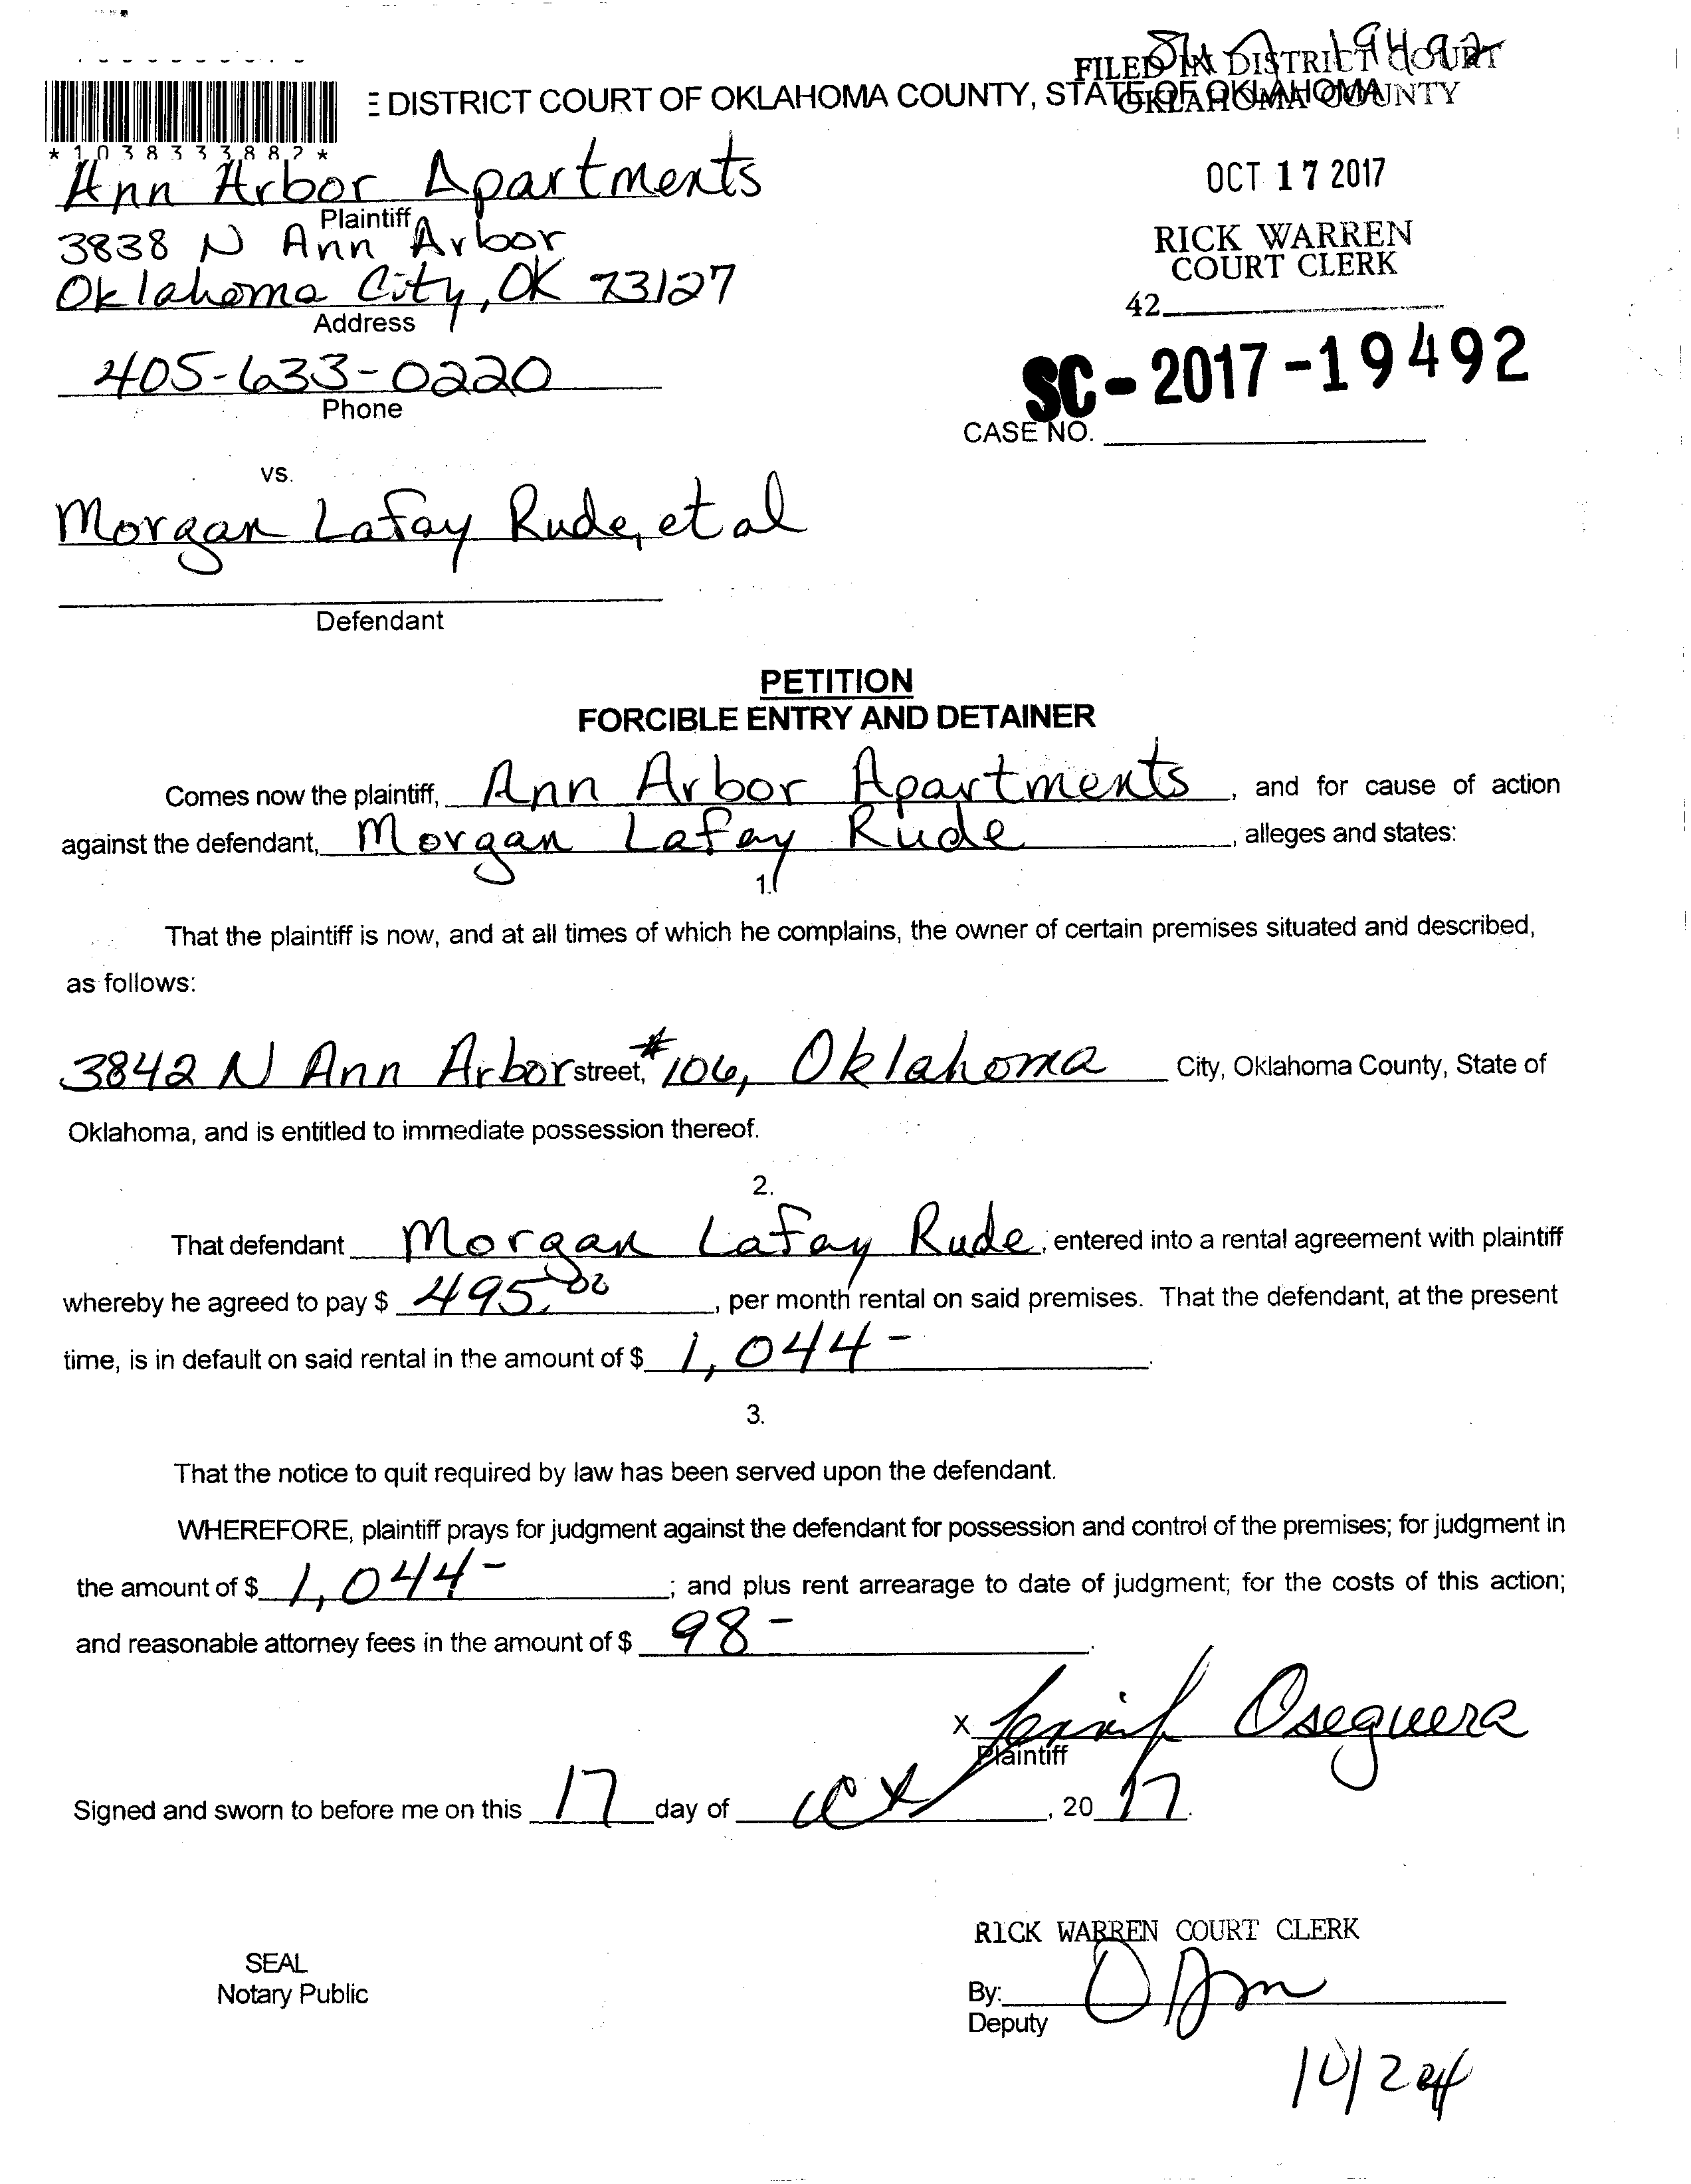 19492
FILED IN DISTRICT COURT
OKLAHOMA COUNTY
DISTRICT COURT OF OKLAHOMA COUNTY, STATE OF OKLAHOMA
*1038333882*
Ann Arbor Apartments
Plaintiff
OCT 17 2017
3838 N Ann Arbor
RICK WARREN
COURT CLERK
Oklahoma City, OK 73127
Address
42
405-633-0220
Phone
SC-2017-19492
CASE NO.
vs.
Morgan Lafay Rude, et al
Defendant
PETITION
FORCIBLE ENTRY AND DETAINER
Comes now the plaintiff, Ann Arbor Apartments, and for cause of action
against the defendant, Morgan Lafay Rude, alleges and states:
1.
That the plaintiff is now, and at all times of which he complains, the owner of certain premises situated and described,
as follows:
3842 N Ann Arbor street, #106, Oklahoma City, Oklahoma County, State of
Oklahoma, and is entitled to immediate possession thereof.
2.
That defendant Morgan Lafay Rude, entered into a rental agreement with plaintiff
whereby he agreed to pay $ 495.00, per month rental on said premises. That the defendant, at the present
time, is in default on said rental in the amount of $ 1,044-.
3.
That the notice to quit required by law has been served upon the defendant.
WHEREFORE, plaintiff prays for judgment against the defendant for possession and control of the premises; for judgment in
the amount of $ 1,044-; and plus rent arrearage to date of judgment; for the costs of this action;
and reasonable attorney fees in the amount of $ 98-.
X Oseguera
Plaintiff
Signed and sworn to before me on this 17 day of Oct, 20 17.
RICK WARREN COURT CLERK
SEAL
Notary Public
By:
Deputy